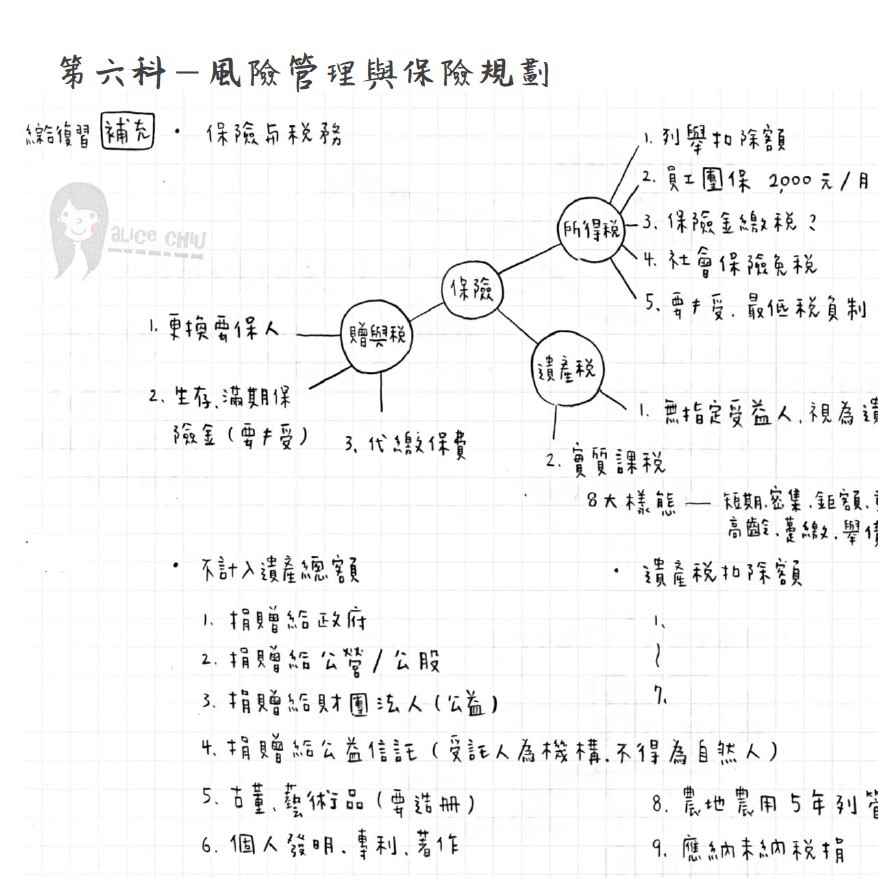 第六科－風險管理與保險規劃
總複習 補充 · 保險与稅務
ALICE CHIU
保險
所得稅
1. 列舉扣除額
2. 員工團保 2,000元/月
3. 保險金繳稅？
4. 社會保險免稅
5. 要≠受、最低稅負制
贈與稅
1. 更換要保人
2. 生存、滿期保
險金（要≠受）
3. 代繳保費
遺產稅
1. 無指定受益人，視為遺
2. 實質課稅
8大樣態 — 短期、密集、鉅額、
高齡、躉繳、舉債
· 不計入遺產總額
1. 捐贈給政府
2. 捐贈給公營/公股
3. 捐贈給財團法人（公益）
4. 捐贈給公益信託（受託人為機構，不得為自然人）
5. 古董、藝術品（要造冊）
6. 個人發明、專利、著作
· 遺產稅扣除額
1.
~
7.
8. 農地農用5年列管
9. 應納未納稅捐